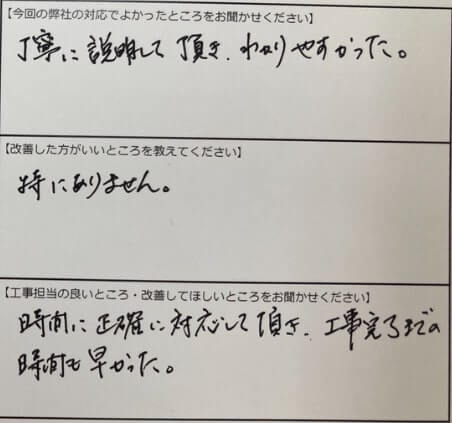 【今回の弊社の対応でよかったところをお聞かせください】
丁寧に説明して頂き、わかりやすかった。
【改善した方がいいところを教えてください】
特にありません。
【工事担当の良いところ・改善してほしいところをお聞かせください】
時間に正確に対応して頂き、工事完了までの
時間も早かった。